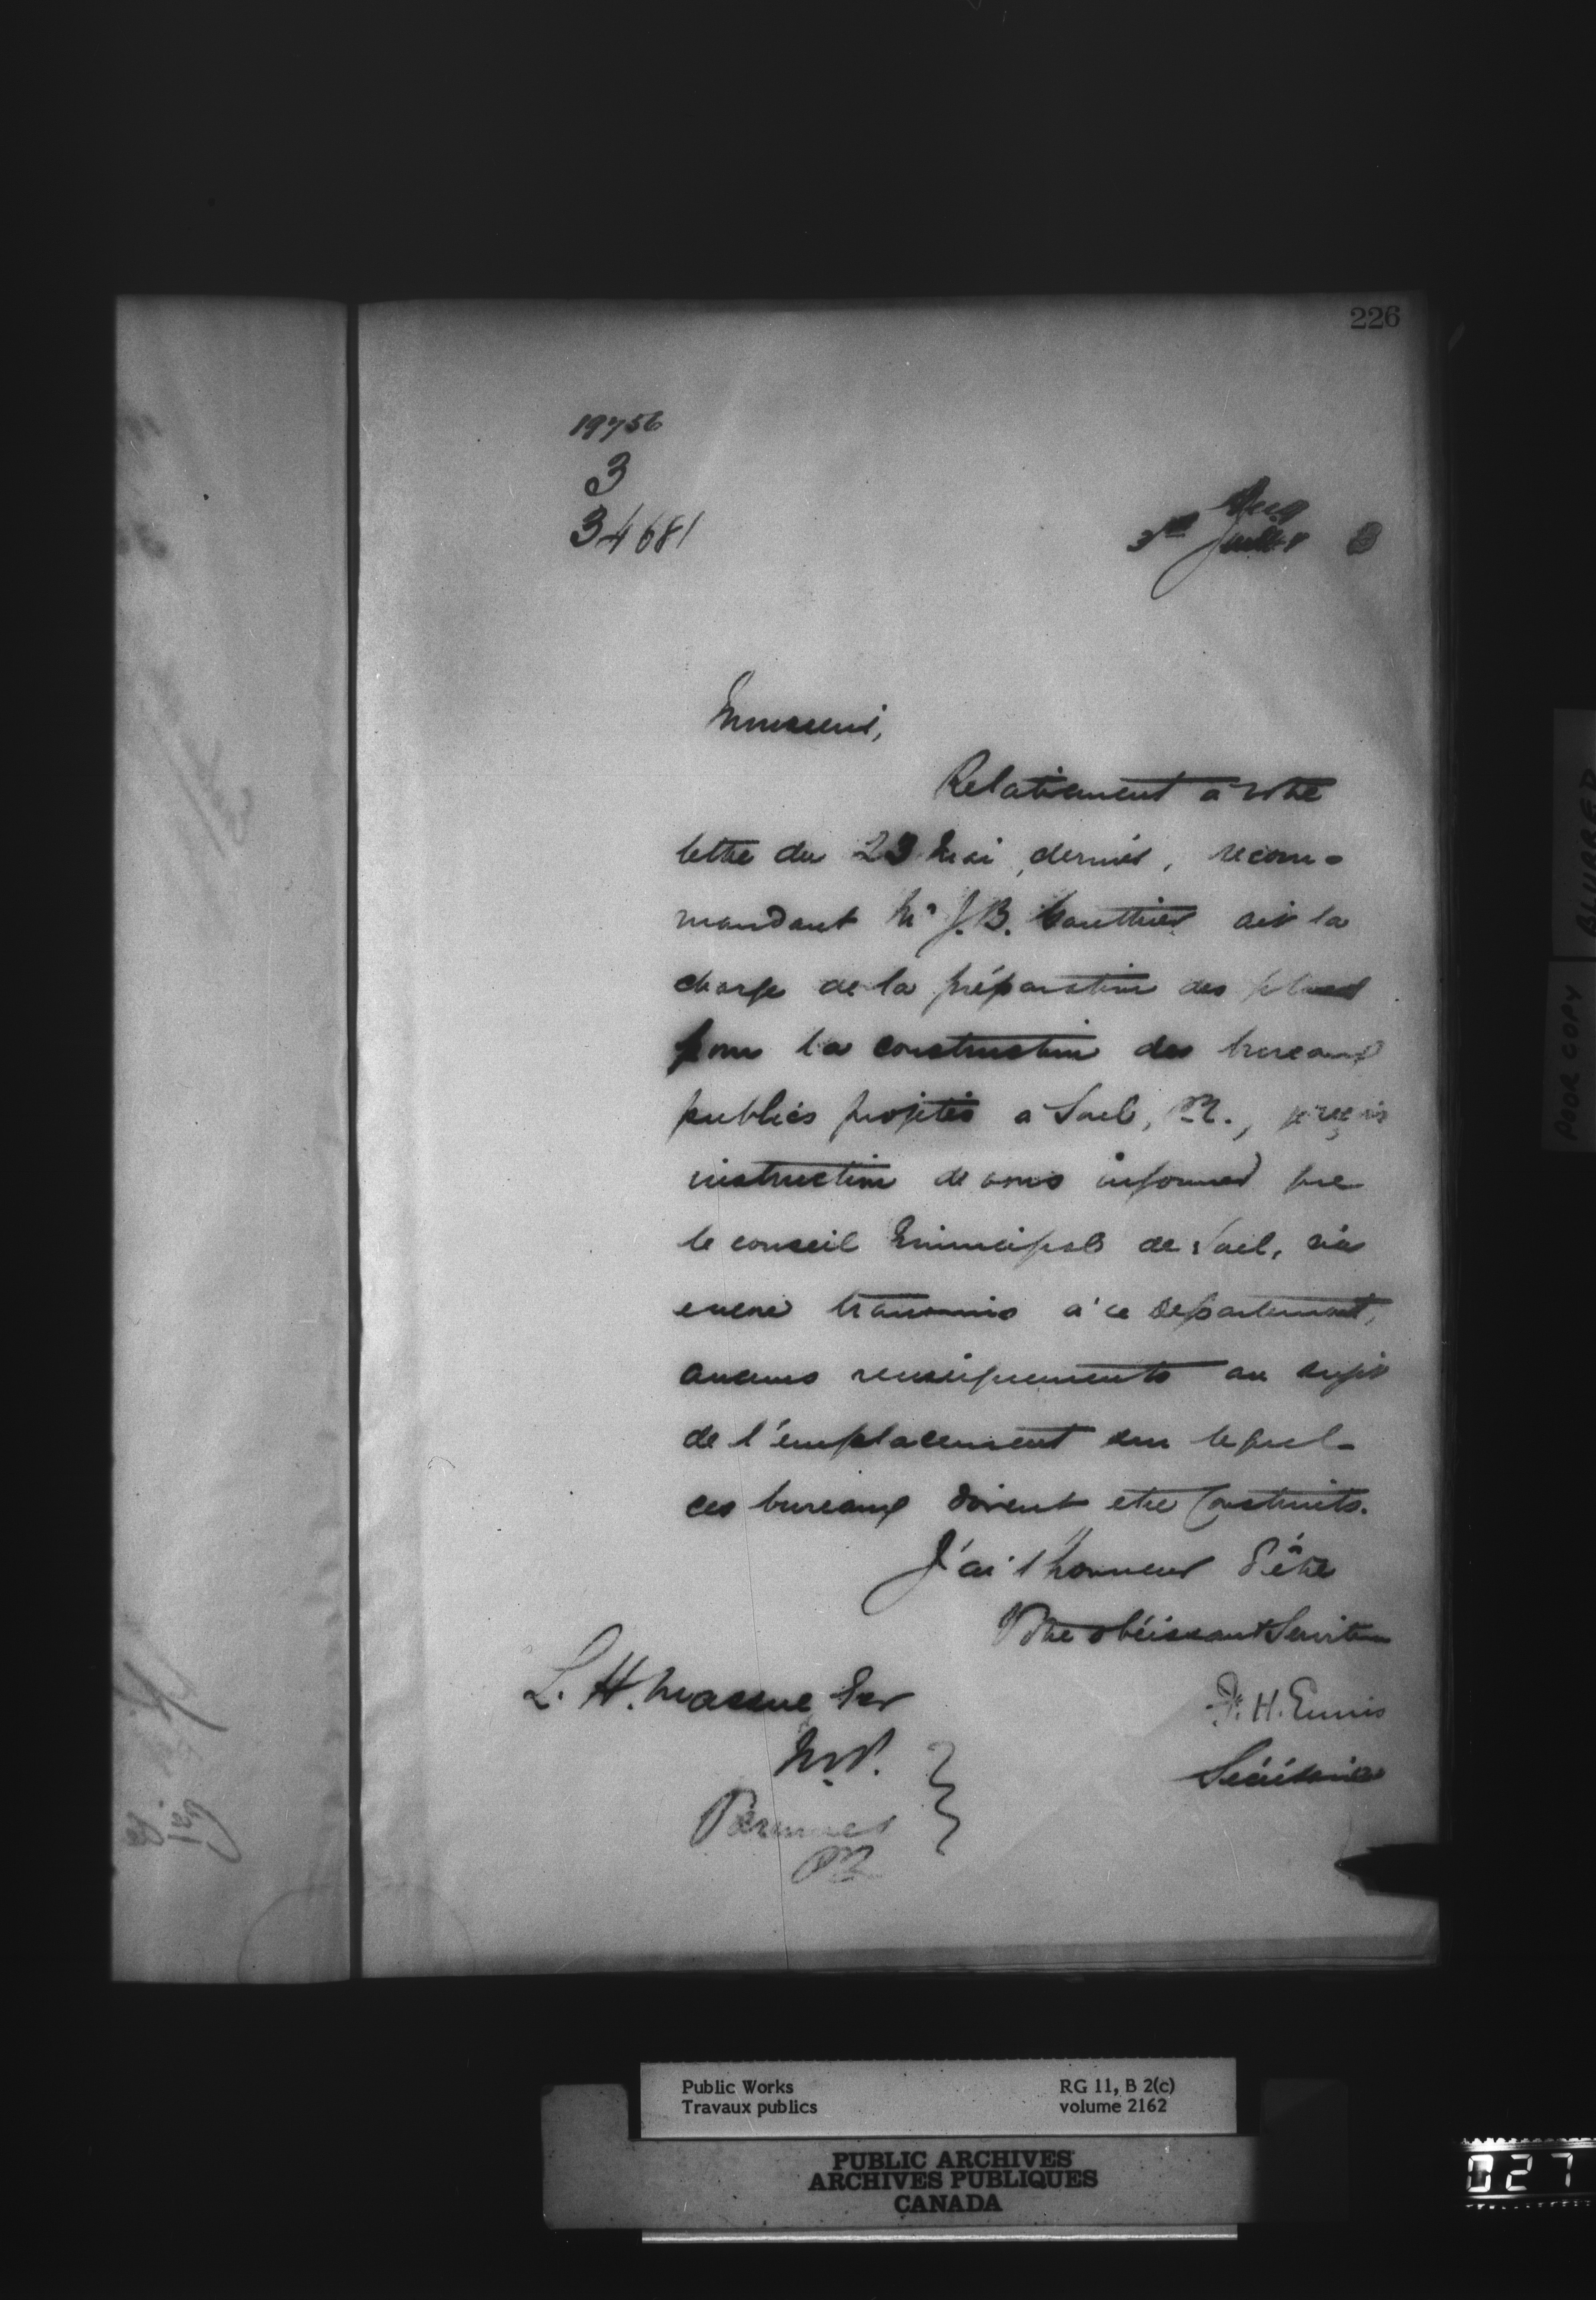 226
19756
3
34681
Aug
3rd Juillet 3
Monsieur,
Relativement à votre
lettre du 23 Mai dernier, recom-
mandant Mr J.B. Gauthier ait la
charge de la préparation des plans
pour la construction des bureaux
publics projetés a Sorel, P.Q., j'ai reçu
instruction de vous informer que
le conseil Municipal de Sorel, n'a
encore transmis à ce département,
aucuns renseignements au sujet
de l'emplacement sur lequel
ces bureaux doivent etre construits.
J'ai l'honneur d'être
Votre obéissant Serviteur
F. H. Ennis
Secrétaire
L. H. Massue Ecr
M.P.
Varennes
P.Q.
BLURRED
POOR COPY
Public Works
Travaux publics
RG 11, B 2(c)
volume 2162
PUBLIC ARCHIVES
ARCHIVES PUBLIQUES
CANADA
027